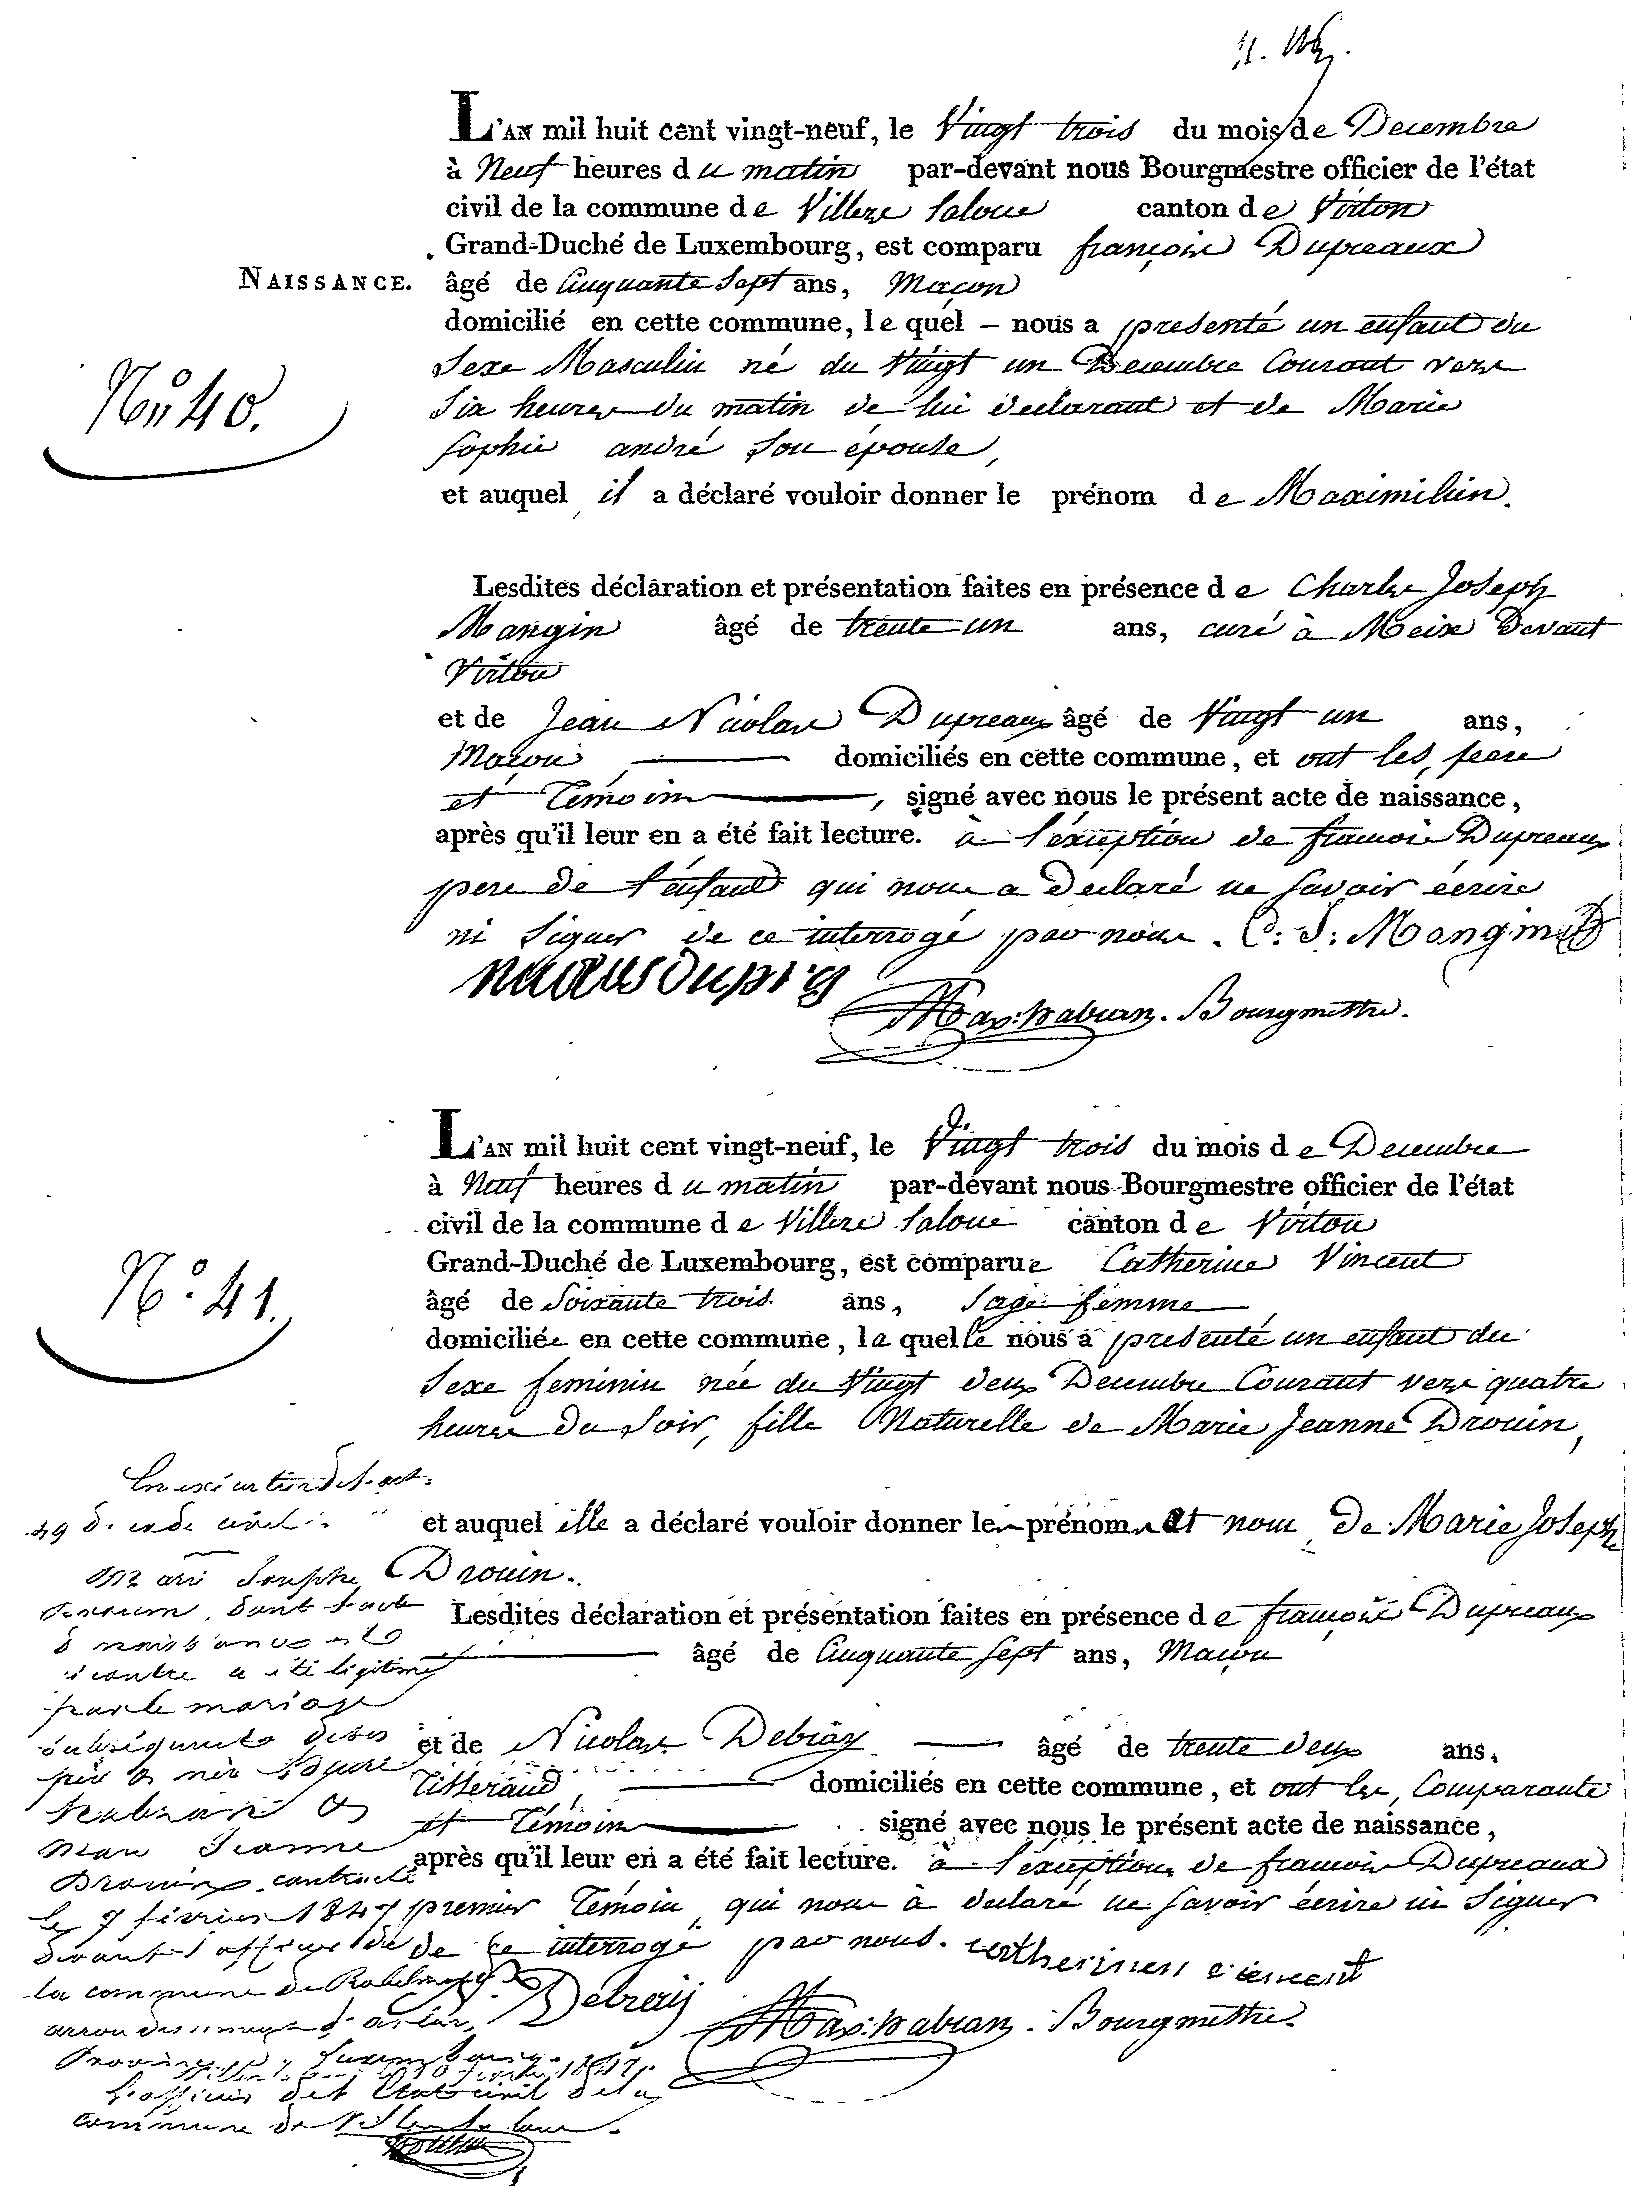 L'AN mil huit cent vingt-neuf, le Vingt trois du mois de Decembre
à Neuf heures du matin par-devant nous Bourgmestre officier de l'état
civil de la commune de Villers Laloue canton de Virton
Grand-Duché de Luxembourg, est comparu françois Dupreaux
NAISSANCE.
âgé de Cinquante Sept ans, Maçon
domicilié en cette commune, lequel – nous a presenté un enfant du
N° 40.
Sexe Masculin né du Vingt un Decembre Courant vers
Six heures du matin de lui declarant et de Marie
Sophie andré Son épouse,
et auquel il a déclaré vouloir donner le prénom de Maximilien.
Lesdites déclaration et présentation faites en présence de Charles Joseph
Mangin âgé de trente un ans, curé à Meix Devant
Virton
et de Jean Nicolas Dupreaux âgé de Vingt un ans,
Maçon domiciliés en cette commune, et ont les, pere
et Témoins, signé avec nous le présent acte de naissance,
après qu'il leur en a été fait lecture. à l'éxception de francois Dupreaux
pere de l'enfant qui nous a declaré ne savoir écrire
ni Signer de ce interrogé par nous. C: J: Mangin
Bourgmestre.
L'AN mil huit cent vingt-neuf, le Vingt trois du mois de Decembre
à Neuf heures du matin par-devant nous Bourgmestre officier de l'état
civil de la commune de Villers Laloue canton de Virton
Grand-Duché de Luxembourg, est comparue Catherine Vincent
N° 41.
âgé de Soixante trois ans, Sage femme
domiciliée en cette commune, laquelle nous a presenté un enfant du
Sexe feminin née du Vingt deux Decembre Courant vers quatre
heures du Soir, fille Naturelle de Marie Jeanne Drouin,
et auquel elle a déclaré vouloir donner les prénoms et nom de Marie Joseph
Drouin.
Lesdites déclaration et présentation faites en présence de françois Dupreaux
âgé de Cinquante Sept ans, Maçon
et de Nicolas Debray âgé de trente deux ans,
Tisserand, domiciliés en cette commune, et ont les, Comparante
et Témoins signé avec nous le présent acte de naissance,
après qu'il leur en a été fait lecture. à l'éxception de francois Dupreaux
premier Témoin, qui nous à declaré ne savoir écrire ni Signer
de ce interrogé par nous.
Debray
Bourgmestre.
En exécution de l'art.
49 du code civil
Marie Josephe
Drouin, dont l'acte
de naissance est
ci contre a été légitimée
par le mariage
subséquent de ses
père et mère
Marie Jeanne
Drouin, contracté
le 7 février 1847
devant l'officier de
la commune de
arrondissement d'arlon,
Province de Luxembourg.
L'officier de l'Etat civil de la
commune de Villers la loue.